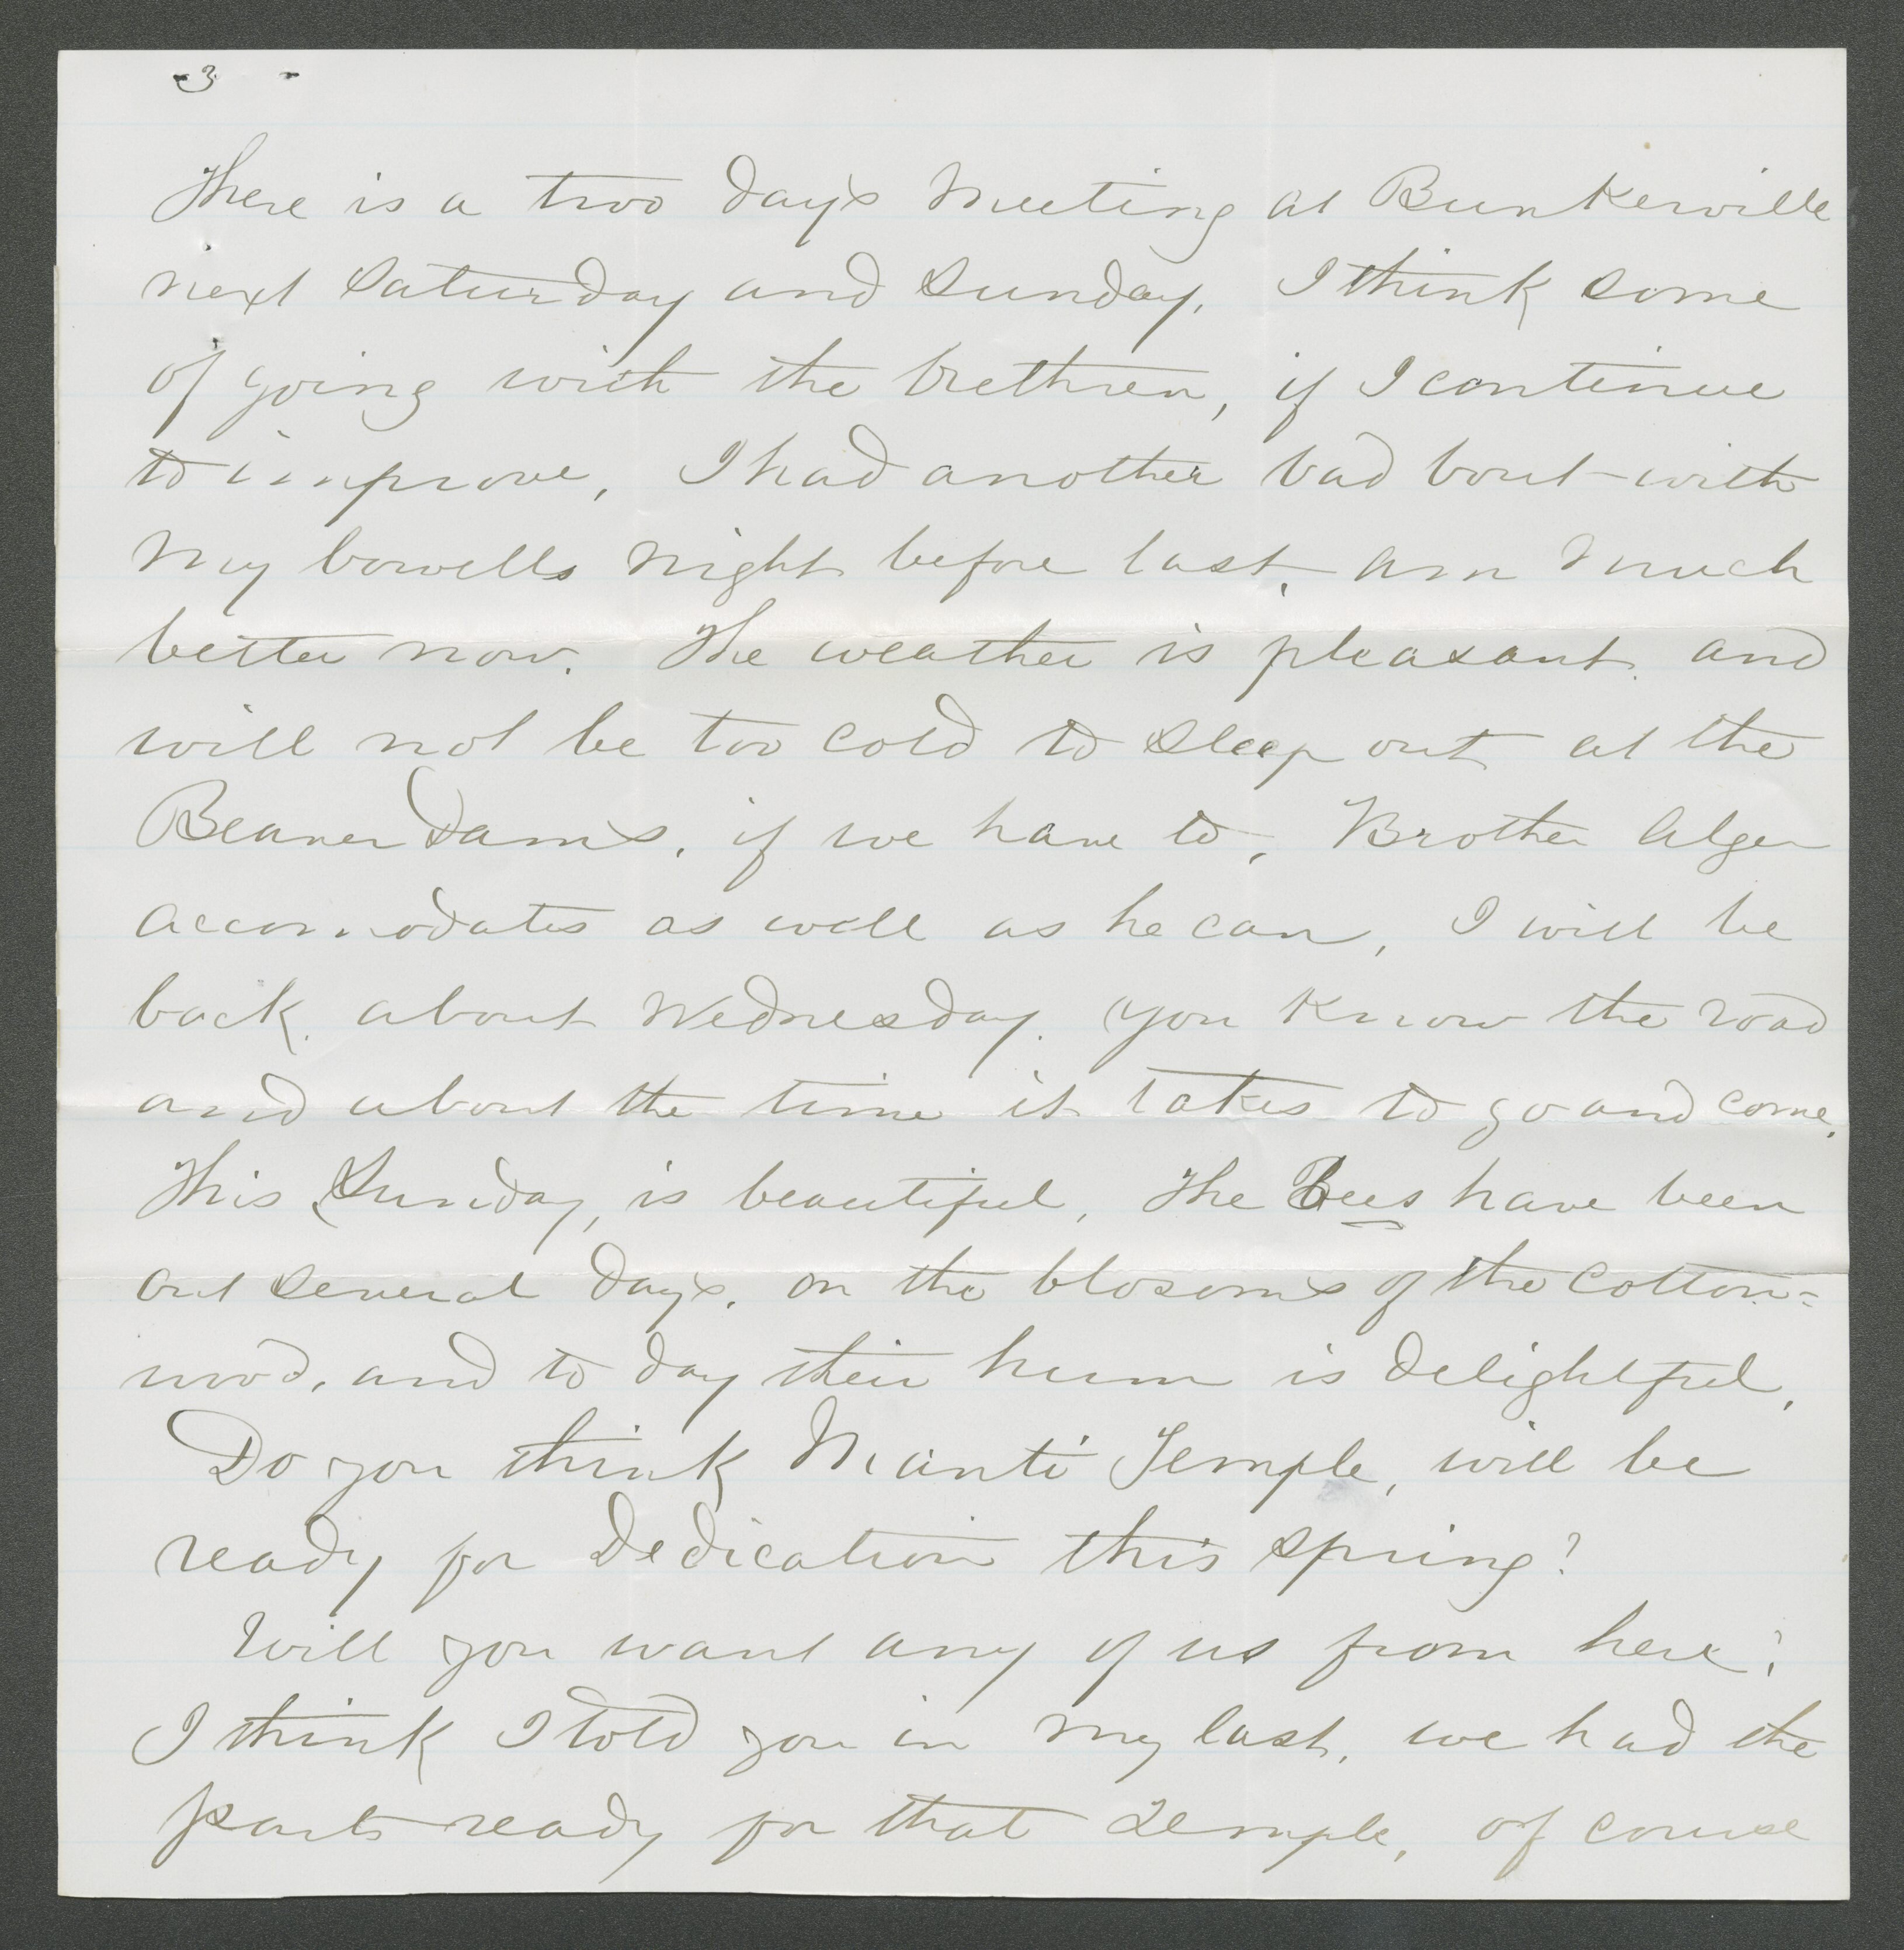 3
There is a two day's meeting at Bunkerville
next Saturday and Sunday. I think some
of going with the brethren, if I continue
to improve, I had another bad bout with
my bowells night before last, am much
better now. The weather is pleasant. and
will not be too cold to sleep out at the
Beaver Dams, if we have to, Brother Alger
accomodates as well as he can, I will be
back. about Wednesday. you know the road
and about the time it takes to go and come.
This Sunday, is beautiful, The Bees have been
out several days, on the blosoms of the cotton=
wood, and to day their hum is delightful,
Do you think Manti Temple, will be
ready for Dedication this spring?
Will you want any of us from here?
I think I told you in my last, we had the
parts ready for that Temple, of course